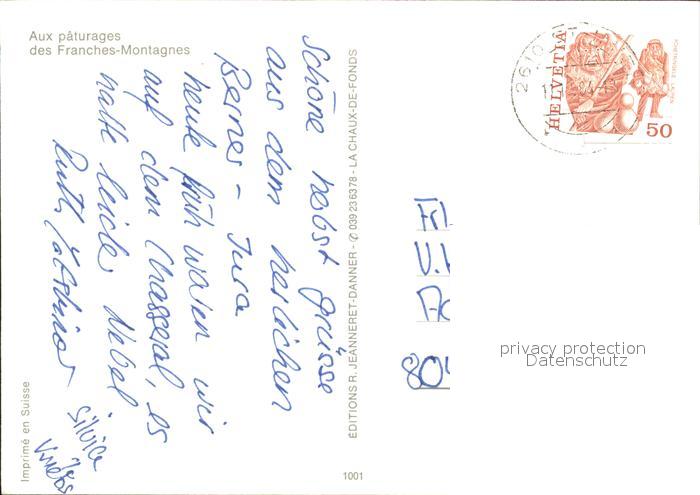 Aux pâturages
des Franches-Montagnes
Schöne Herbstgrüsse
aus dem herlichen
Berner - Jura
heute früh waren wir
auf dem Chasseral, es
hatte leider Nebel
Ruth
Silvia
Imprimé en Suisse
EDITIONS R. JEANNERET-DANNER - ✆ 039 236378 - LA CHAUX-DE-FONDS
1001
2610
HELVETIA
50
privacy protection
Datenschutz